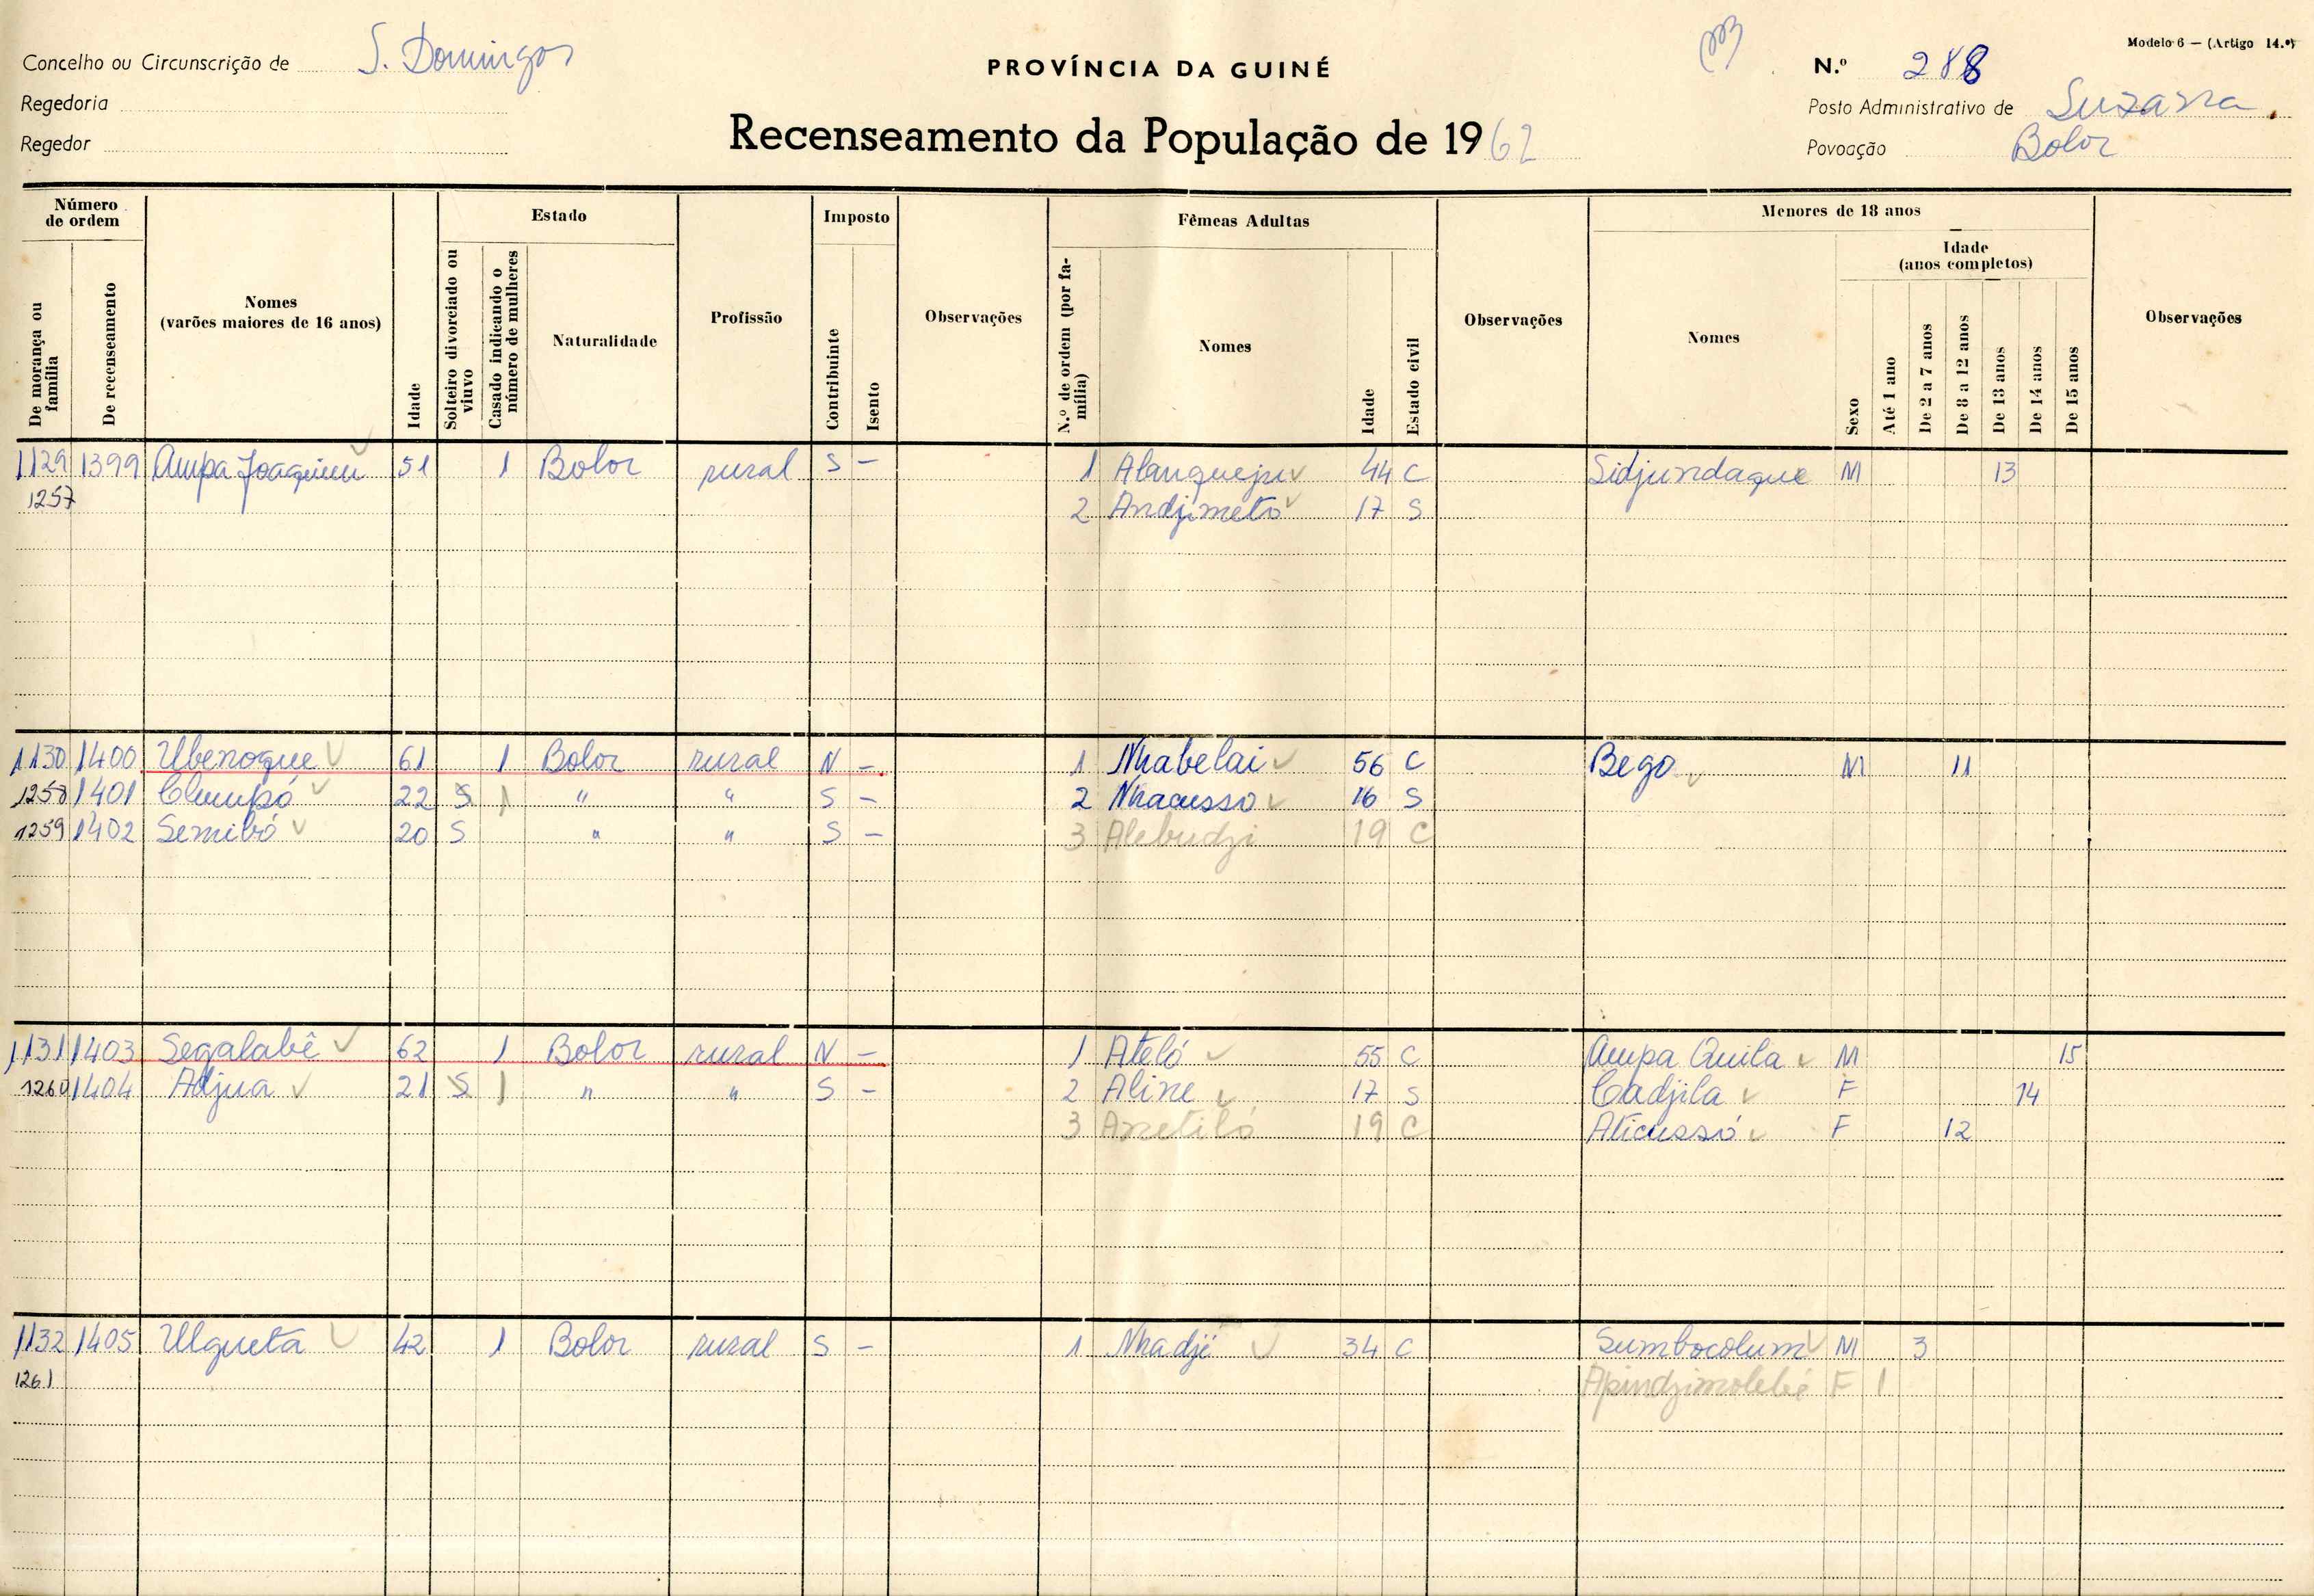 Modelo 6 — (Artigo 14.º)
Concelho ou Circunscrição de S. Domingos
PROVÍNCIA DA GUINÉ
N.º 288
Regedoria
Posto Administrativo de Suzana
Regedor
Recenseamento da População de 1962
Povoação Bolor
Número de ordem
De morança ou família
De recenseamento
Nomes (varões maiores de 16 anos)
Idade
Estado
Solteiro divorciado ou viuvo
Casado indicando o número de mulheres
Naturalidade
Profissão
Imposto
Contribuinte
Isento
Observações
Fêmeas Adultas
N.º de ordem (por família)
Nomes
Idade
Estado civil
Observações
Menores de 18 anos
Nomes
Sexo
Idade (anos completos)
Até 1 ano
De 2 a 7 anos
De 8 a 12 anos
De 13 anos
De 14 anos
De 15 anos
Observações
1129 1399 Ampa Joaquim 51 1 Bolor rural S — 1 Alanqueju 44 C Sidjundaque M 13
1257 2 Andjimeto 17 S
1130 1400 Ubenoque 61 1 Bolor rural N — 1 Nhabelai 56 C Bego M 11
1258 1401 Chumpó 22 S 1 " " S — 2 Nhacusso 16 S
1259 1402 Semibó 20 S " " S — 3 Alebudji 19 C
1131 1403 Segalabê 62 1 Bolor rural N — 1 Ateló 55 C Ampa Quila M 15
1260 1404 Adjua 21 S 1 " " S — 2 Aline 17 S Cadjila F 14
3 Anetiló 19 C Alicussó F 12
1132 1405 Ulqueta 42 1 Bolor rural S — 1 Nhadjé 34 C Sumbocolum M 3
1261 F 1